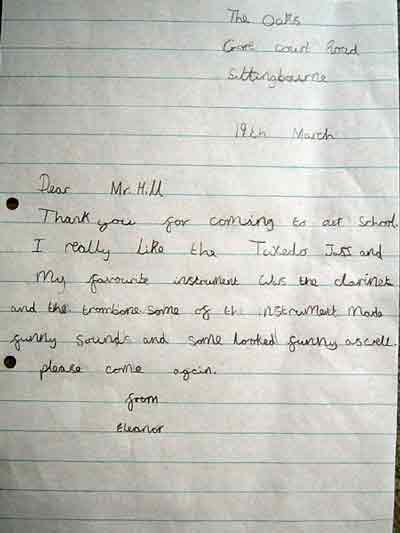 The Oaks
Gore Court Road
Sittingbourne
19th March
Dear Mr. Hill
Thank you for coming to our School.
I really like the Tuxedo Jazz and
My favourite instrument was the clarinet
and the trombone some of the instrument made
funny sounds and some looked funny as well.
please come again.
from
Eleanor